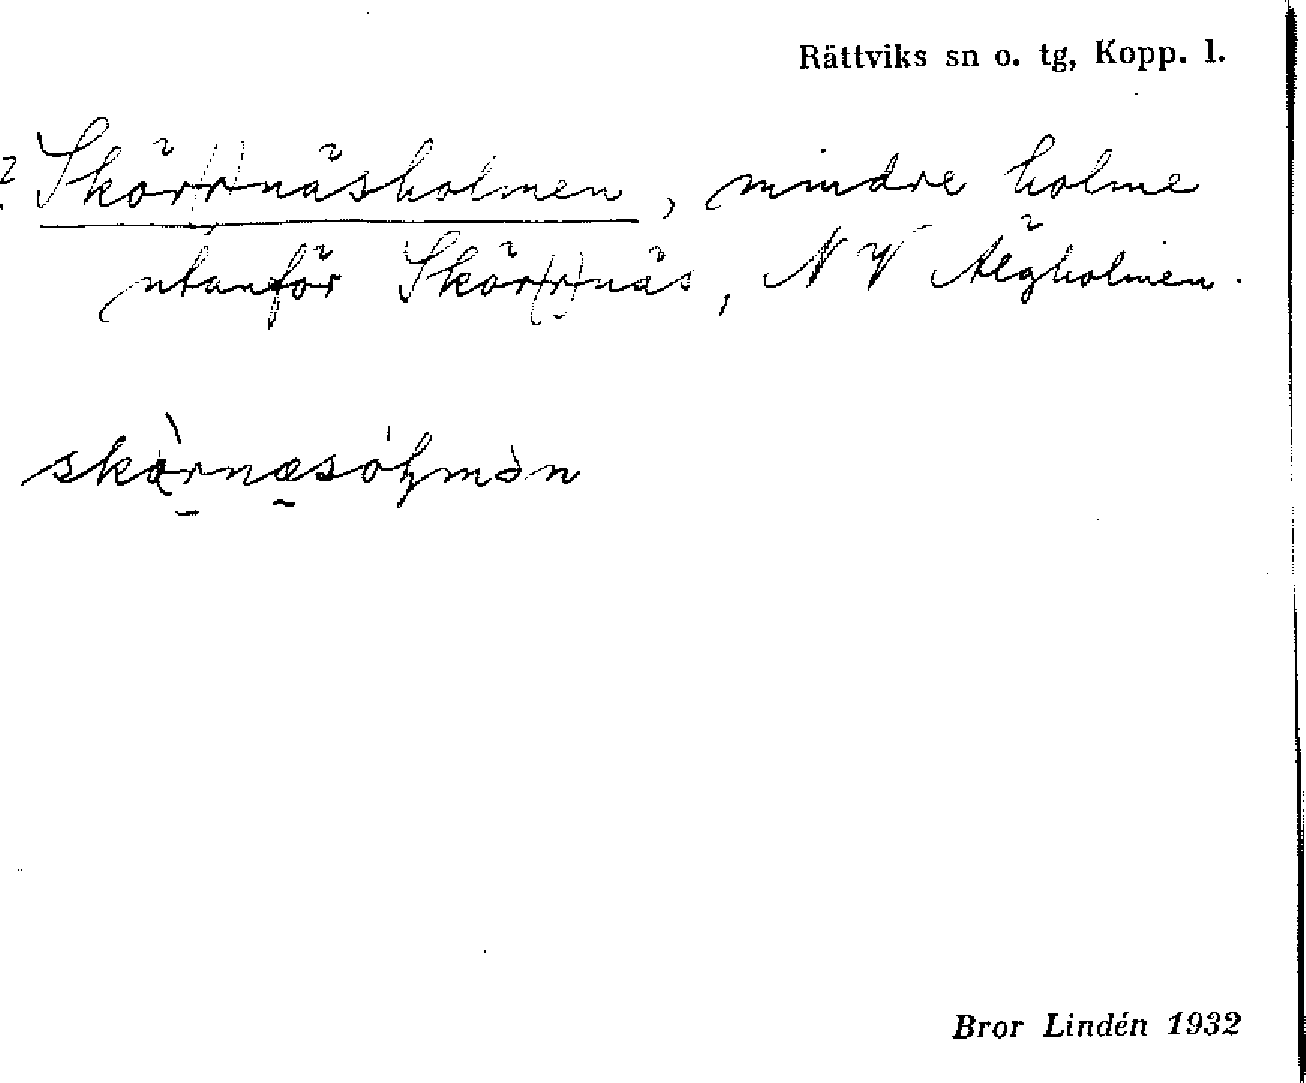 Rättviks sn o. tg, Kopp. l.
? Skör(r)näsholmen, mindre holme
utanför Skör(r)näs, NV Älgholmen.
Bror Lindén 1932